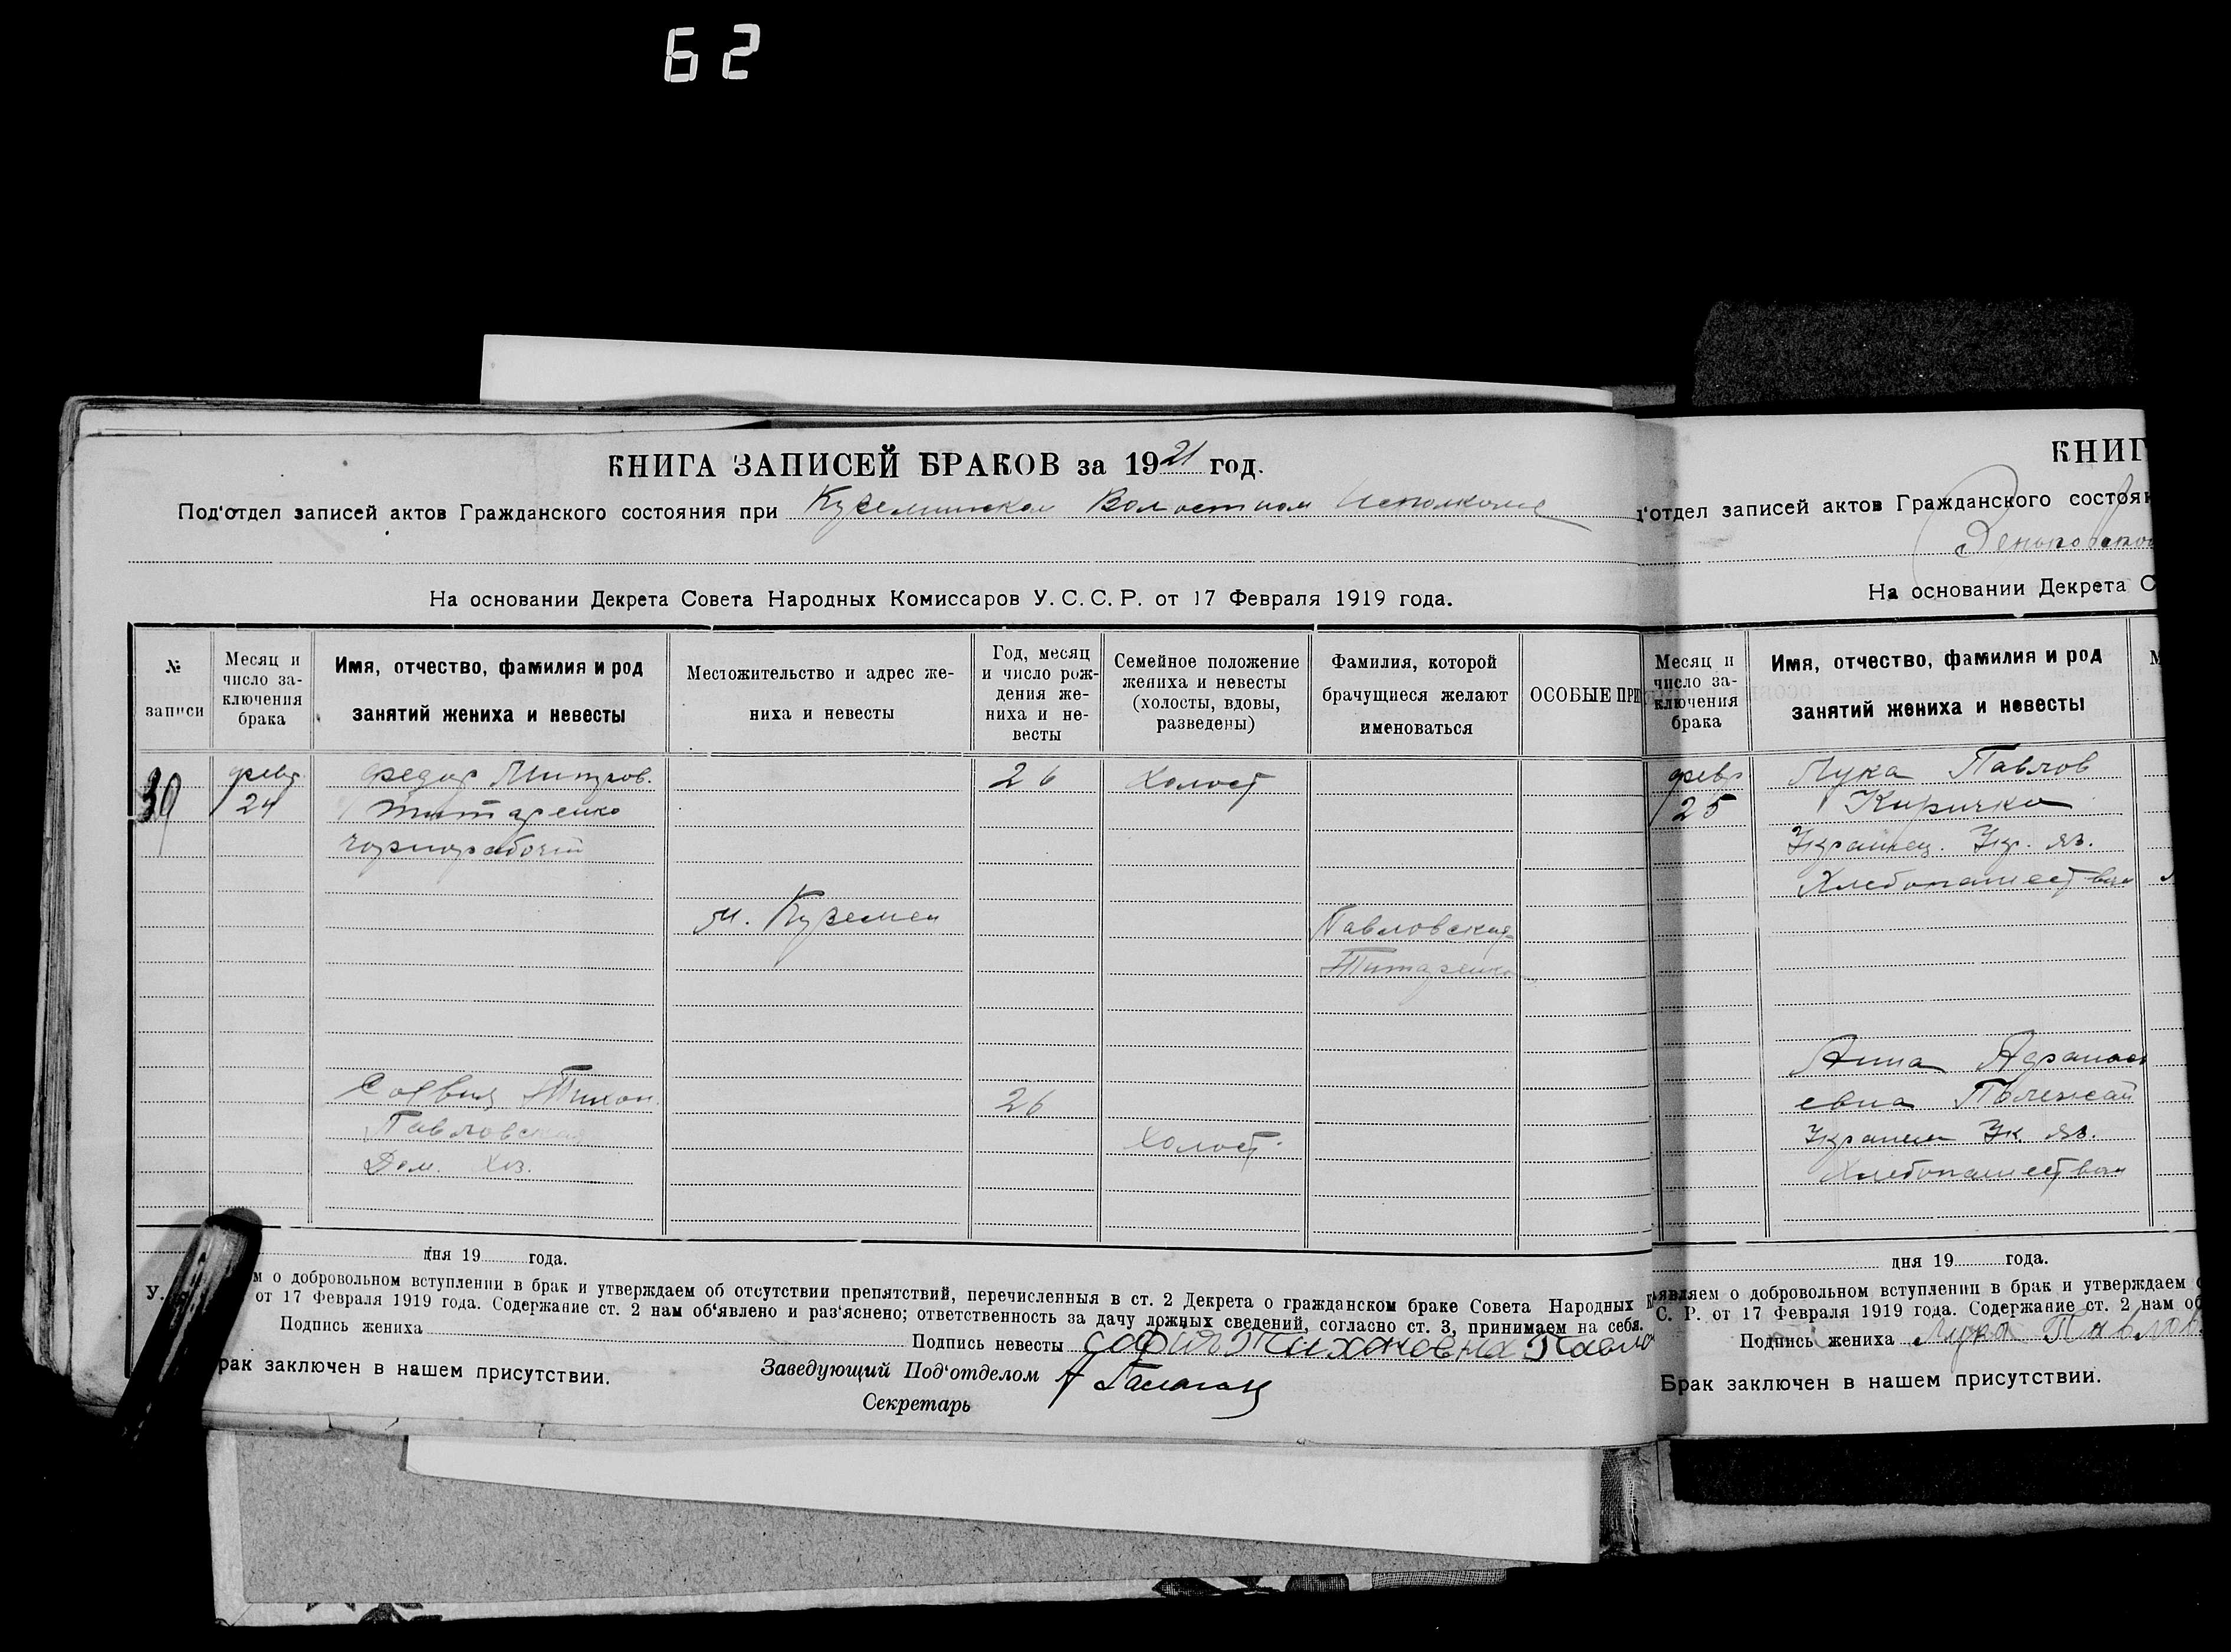 62
КНИГА ЗАПИСЕЙ БРАКОВ за 1921 год.
Под'отдел записей актов Гражданского состояния при Куземинском Волостном Исполкоме
На основании Декрета Совета Народных Комиссаров У.С.С.Р. от 17 Февраля 1919 года.
№ записи
Месяц и число заключения брака
Имя, отчество, фамилия и род занятий жениха и невесты
Местожительство и адрес жениха и невесты
Год, месяц и число рождения жениха и невесты
Семейное положение жениха и невесты (холосты, вдовы, разведены)
Фамилия, которой брачущиеся желают именоваться
ОСОБЫЕ ПРИ
39
февр.
24
Федор
Титаренко
чорнорабочий
26
Холост
м. Куземен
Павловская-
Титаренко
София Тихон.
Павловская
Дом. Хоз.
26
Холост
дня 19 года.
м о добровольном вступлении в брак и утверждаем об отсутствии препятствий, перечисленныя в ст. 2 Декрета о гражданском браке Совета Народных
У. от 17 Февраля 1919 года. Содержание ст. 2 нам об'явлено и раз'яснено; ответственность за дачу ложных сведений, согласно ст. 3, принимаем на себя.
Подпись жениха
Подпись невесты София Тихоновна Павло
рак заключен в нашем присутствии.
Заведующий Под'отделом
Секретарь
КНИГ
'отдел записей актов Гражданского состоян
На основании Декрета С
Месяц и число заключения брака
Имя, отчество, фамилия и род занятий жениха и невесты
М
февр
25
Лука Павлов
Киричко
Украинец. Ук. яз.
Хлебопашество
Анна
евна
Ук яз.
Хлебопашество
дня 19 года.
являем о добровольном вступлении в брак и утверждаем
С. Р. от 17 Февраля 1919 года. Содержание ст. 2 нам об
Подпись жениха Лука Павлов
Брак заключен в нашем присутствии.